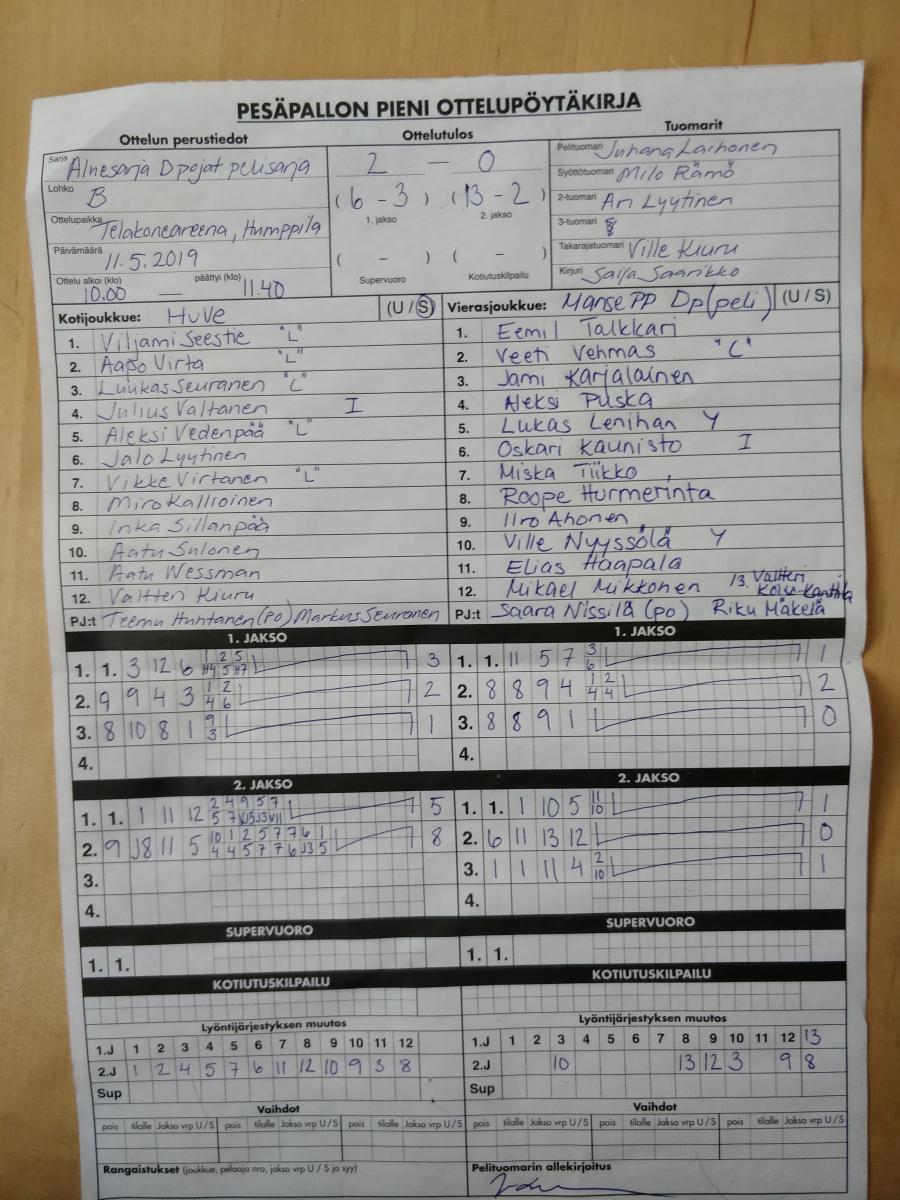 PESÄPALLON PIENI OTTELUPÖYTÄKIRJA
Ottelun perustiedot
Sarja Aluesarja D pojat pelisarja
Lohko B
Ottelupaikka Telakoneareena, Humppila
Päivämäärä 11.5.2019
Ottelu alkoi (klo) 10.00 — päättyi (klo) 11.40
Ottelutulos
2 — 0
(6 - 3) (13 - 2)
1. jakso 2. jakso
( - ) ( - )
Supervuoro Kotiutuskilpailu
Tuomarit
Pelituomari Juhana Laihonen
Syöttötuomari Milo Rämö
2-tuomari Ari Lyytinen
3-tuomari
Takarajatuomari Ville Kiuru
Kirjuri Saija Saarikko
Kotijoukkue: HuVe (U / S)
1. Viljami Seestie "L"
2. Aapo Virta "L"
3. Luukas Seuranen "L"
4. Julius Valtanen I
5. Aleksi Vedenpää "L"
6. Jalo Lyytinen
7. Vikke Virtanen "L"
8. Miro Kallioinen
9. Inka Sillanpää
10. Aatu Sulonen
11. Aatu Wessman
12. Valtteri Kiuru
PJ:t Teemu Huhtanen (PO) Markus Seuranen
Vierasjoukkue: Manse PP Dp (peli) (U / S)
1. Eemil Talkkari
2. Veeti Vehmas "L"
3. Jami Karjalainen
4. Aleksi Puska
5. Lukas Lenihan Y
6. Oskari Kaunisto I
7. Miska Tiikko
8. Roope Hurmerinta
9. Iiro Ahonen
10. Ville Nyyssölä Y
11. Elias Haapala
12. Mikael Mikkonen 13. Valtteri
PJ:t Saara Nissilä (po) Riku Mäkelä
1. JAKSO
1. 1. 3 12 6 3
2. 9 9 4 3 1/4 2/6 2
3. 8 10 8 1 9/3 1
4.
1. JAKSO
1. 1. 11 5 7 3/6 1
2. 8 8 9 4 1/4 2/4 2
3. 8 8 9 1 0
4.
2. JAKSO
1. 1. 1 11 12 5
2. 9 11 5 10/4 1/4 2/5 5/7 7/7 7/6 8
3.
4.
2. JAKSO
1. 1. 1 10 5 11/10 1
2. 6 11 13 12 0
3. 1 1 11 4 2/10 1
4.
SUPERVUORO
1. 1.
SUPERVUORO
1. 1.
KOTIUTUSKILPAILU
KOTIUTUSKILPAILU
Lyöntijärjestyksen muutos
1.J 1 2 3 4 5 6 7 8 9 10 11 12
2.J 1 2 4 5 7 6 11 12 10 9 3 8
Sup
Lyöntijärjestyksen muutos
1.J 1 2 3 4 5 6 7 8 9 10 11 12 13
2.J 10 13 12 3 9 8
Sup
Vaihdot
pois tilalle Jakso vrp U / S pois tilalle Jakso vrp U / S pois tilalle Jakso vrp U / S
Vaihdot
pois tilalle Jakso vrp U / S pois tilalle Jakso vrp U / S pois tilalle Jakso vrp U / S
Rangaistukset (joukkue, pelaaja nro, jakso vrp U / S ja syy)
Pelituomarin allekirjoitus